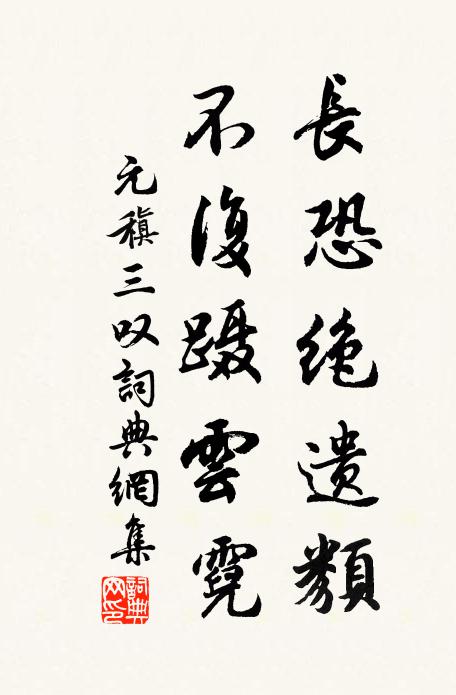 長恐絶遺類
不復蹑雲霓
元稹三叹詞典網集
詞典网印